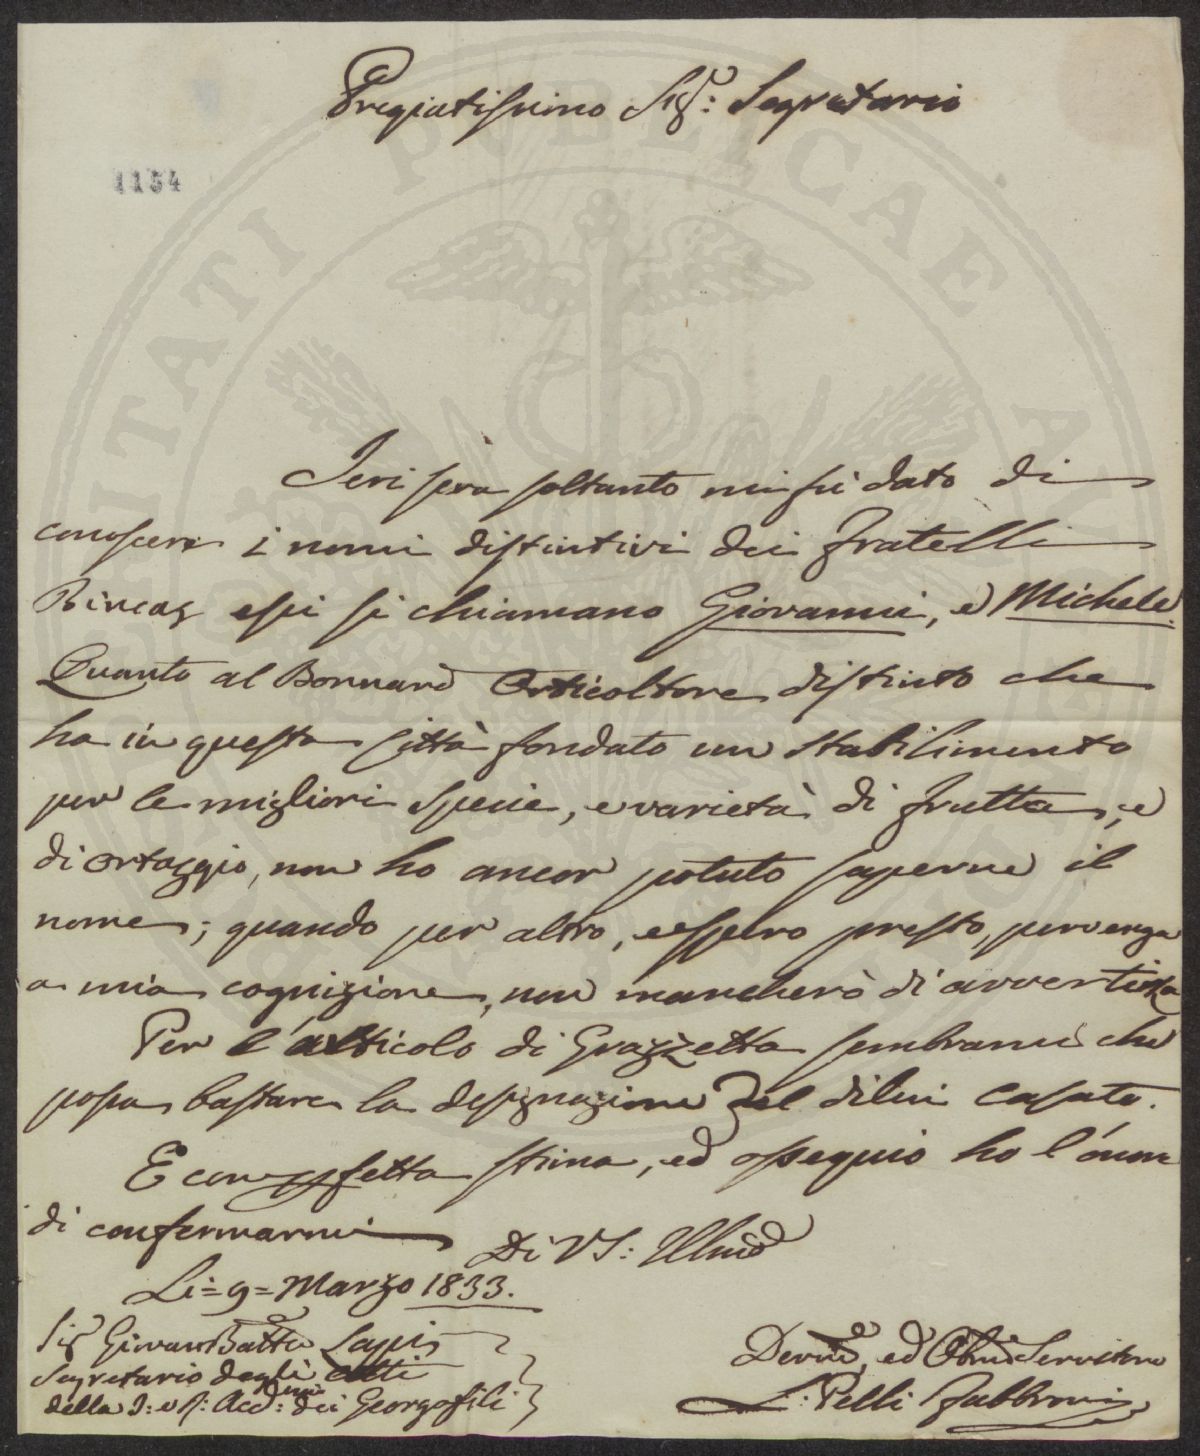 Pregiatissimo Sig.r: Segretario
1134
PUBLICAE
Jeri sera soltanto mi fù dato di
conoscere i nomi distintivi dei Fratelli
essi si chiamano Giovanni, e Michele.
Quanto al Bonnard Orticoltore distinto che
ha in questa Città fondato un stabilimento
per le migliori specie, e varietà di frutta, e
di ortaggio, non ho ancor potuto saperne il
nome; quando per altro, e spero presto, pervenga
a mia cognizione, non mancherò di avvertirla
Per l'articolo di Gazzetta sembrami che
possa bastare la designazione del di lui Casato.
E con perfetta stima, ed ossequio ho l'onore
di confermarmi
Di VS: Illma
Li= 9= Marzo 1833.
Sigr Giovan Batta Lapi
Segretario degli Atti
della I: e R: Accd:emia dei Georgofili
Devmo, ed Obbmo Servitore
L: Pelli Fabbroni